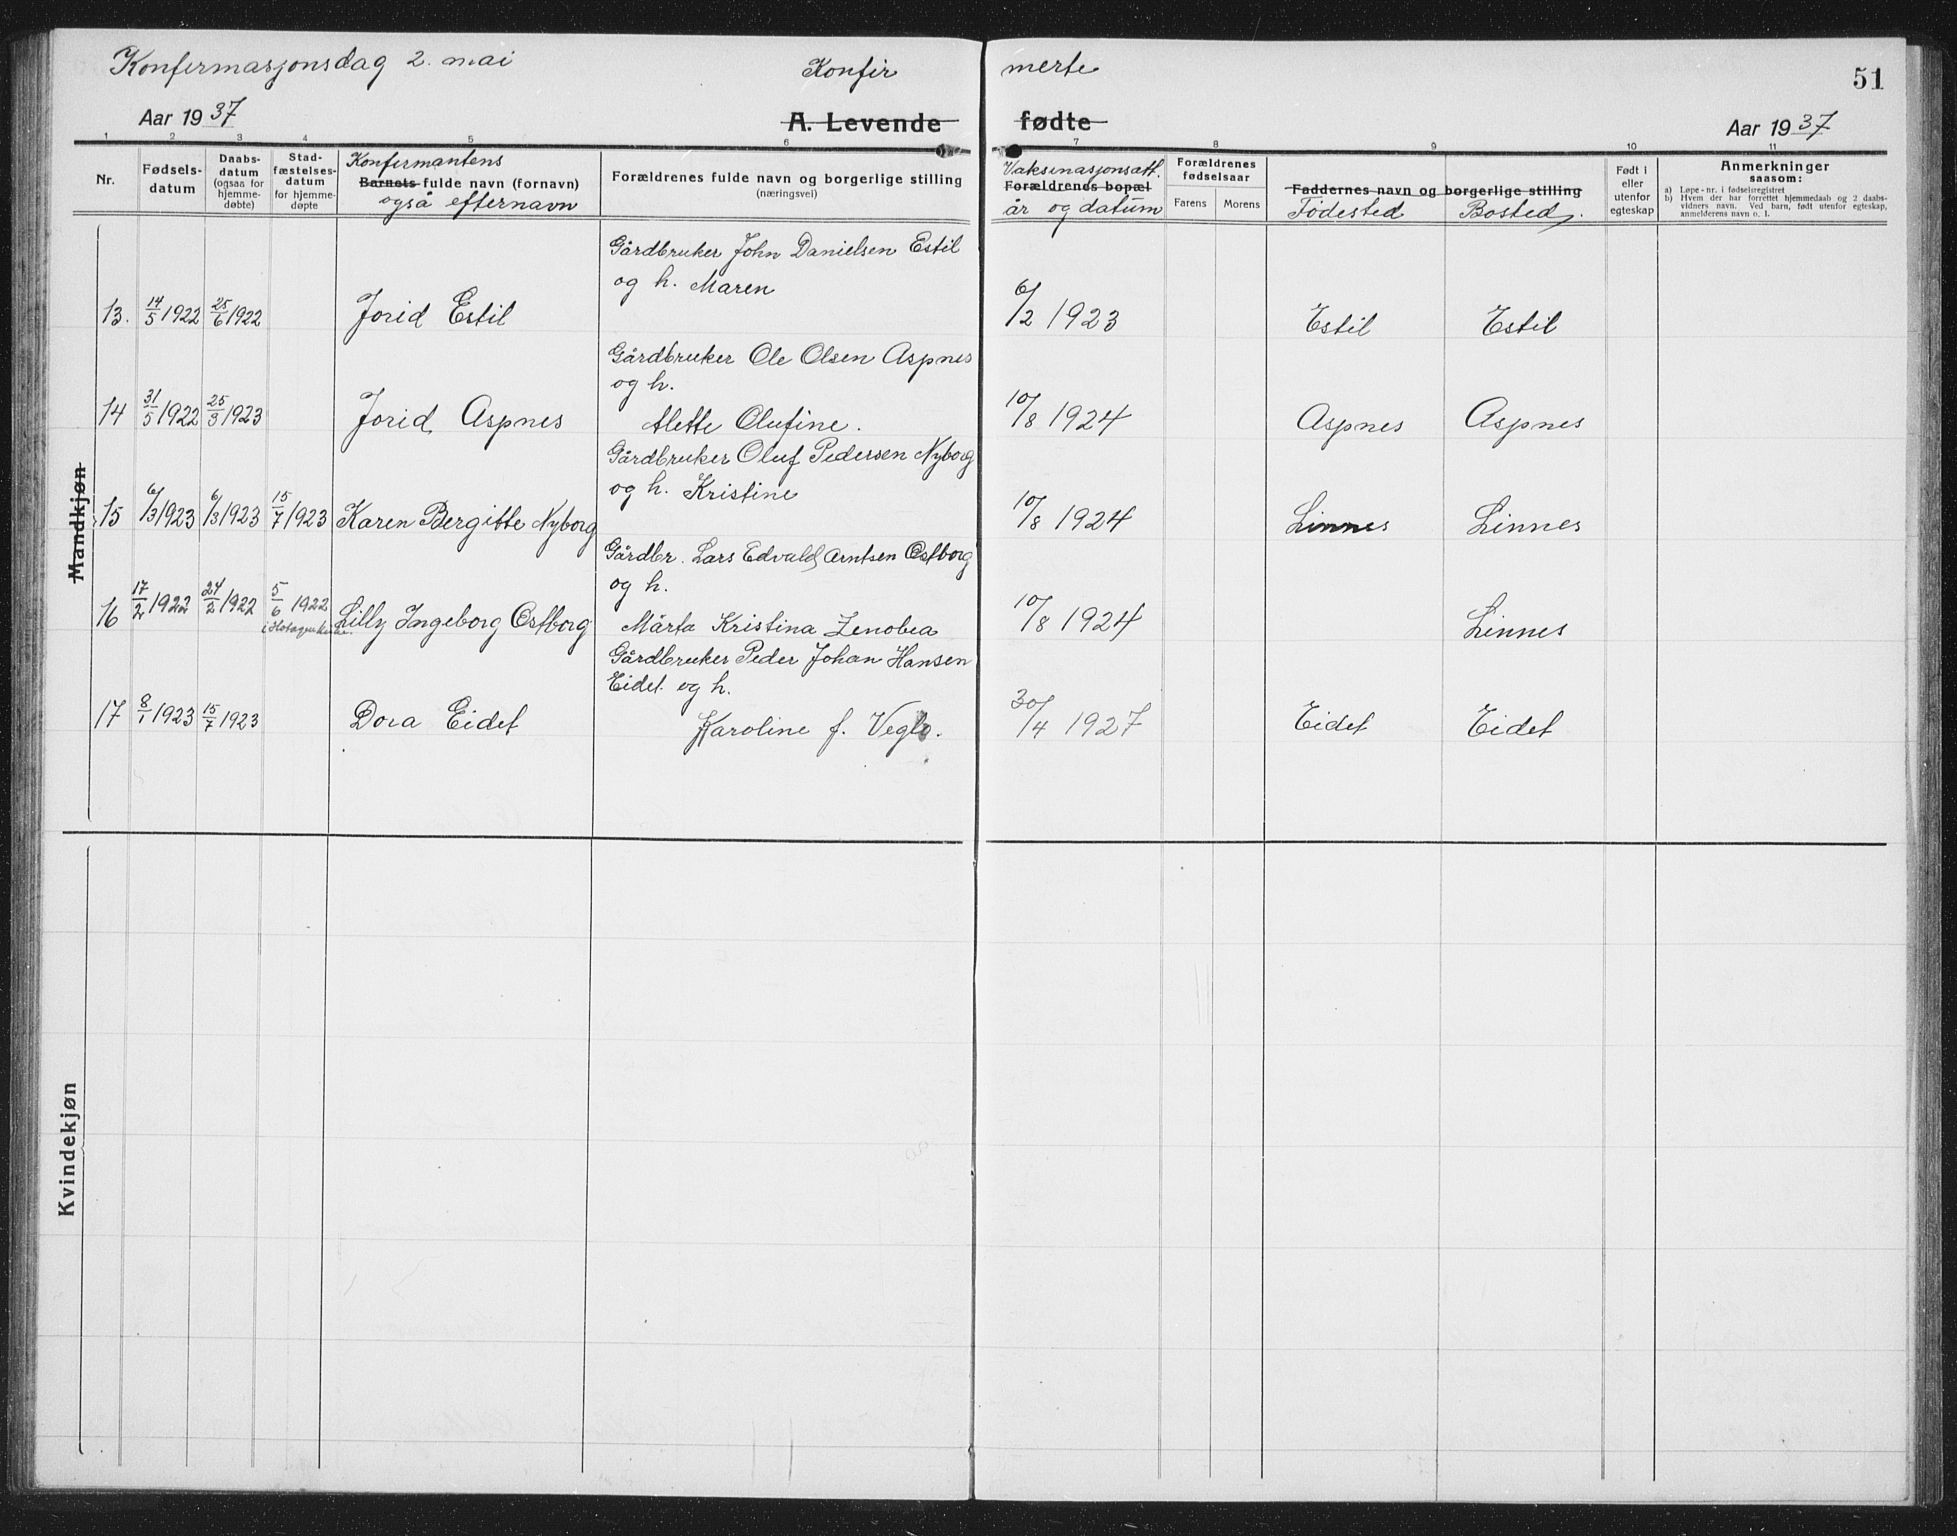 Konfermasjonsdag 2. mai Konfir merte 51
Aar 1937 A. Levende fødte Aar 1937
1 2 3 4 5 6 7 8 9 10 11
Nr.
Fødsels-
datum
Daabs-
datum
(ogsaa for
hjemme-
døbte)
Stad-
fæstelses-
datum
for hjemme-
døpte
Konfermantens
Barnets fulde navn (fornavn)
også efternavn
Forældrenes fulde navn og borgerlige stilling
(næringsvei)
Vaksinasjonsatt.
Forældrenes bopæl
år og datum
Forældrenes
fødselsaar
Farens Morens
Faddernes navn og borgerlige stilling
Fødested Bosted.
Født i
eller
utenfor
egteskap
Anmerkninger
saasom:
a) Løpe-nr. i fødselsregistret
b) Hvem der har forrettet hjemmedaab og 2 daabs-
vidners navn. Ved barn, født utenfor egteskap,
anmelderens navn o. l.
Mandkjøn
Gårdbruker John Danielsen Estil
og h. Maren
13. 14/5 1922 25/6 1922 Jorid Estil 6/2 1923 Estil Estil
Gårdbruker Ole Olsen Aspnes
og h.
14 31/5 1922 25/3 1923 Jorid Aspnes Alette Olufine. 10/8 1924 Aspnes Aspnes
Gårdbruker Oluf Pedersen Nyborg
og h. Kristine
15 6/3 1923 6/3 1923 15/7 1923 Karen Bergitte Nyborg 10/8 1924 Linnes Linnes
Gårdbr. Lars Edvald Arntsen Ostborg
og h.
16 17/2 1922 24/2 1922 5/6 1922 Lilly Ingeborg Ostborg Märta Kristina Zenobia 10/8 1924 Linnes
i Hotagen kirke.
Gårdbruker Peder Johan Hansen
Eidet og h.
17 8/1 1923 15/7 1923 Dora Eidet Karoline f. Veglo. 30/4 1927 Eidet Eidet
Kvindekjøn